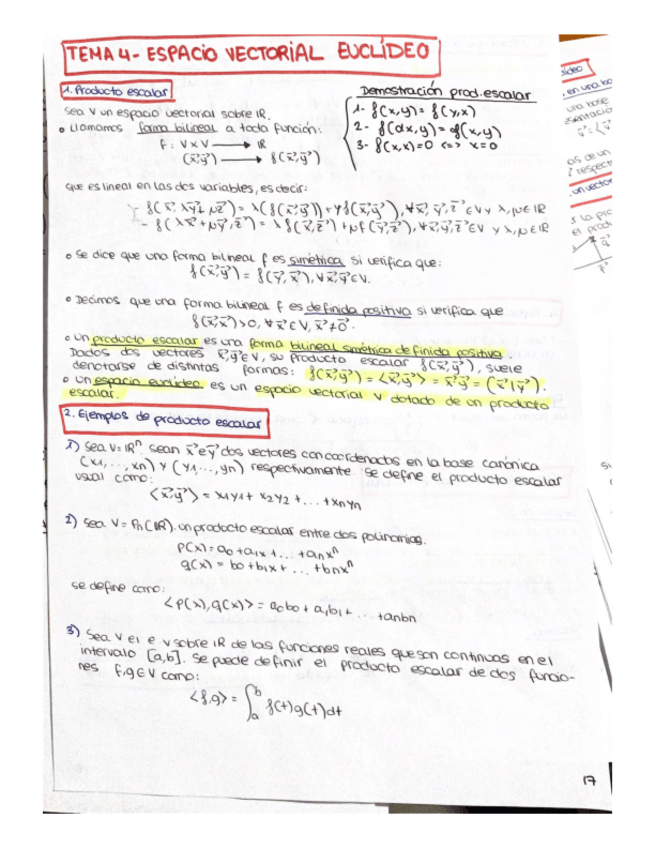 TEMA 4- ESPACIO VECTORIAL EUCLÍDEO
1. Producto escalar
Sea V un espacio vectorial sobre IR.
• Llamamos forma bilineal a toda función:
f: V x V ⟶ IR
(x⃗,y⃗) ⟶ f(x⃗,y⃗)
Demostración prod. escalar
1- f(x,y) = f(y,x)
2- f(αx,y) = αf(x,y)
3- f(x,x)=0 <=> x=0
que es lineal en las dos variables, es decir:
- f(x⃗, λy⃗+ μz⃗) = λ(f(x⃗,y⃗)) + μf(x⃗,z⃗), ∀x⃗, y⃗, z⃗ ∈V y λ,μ∈IR
- f(λx⃗ + μy⃗, z⃗) = λ f(x⃗,z⃗) + μf(y⃗,z⃗), ∀x⃗,y⃗,z⃗ ∈V y λ,μ∈IR
• Se dice que una forma bilineal f es simétrica si verifica que:
f(x⃗,y⃗) = f(y⃗,x⃗), ∀x⃗,y⃗∈V.
• Decimos que una forma bilineal f es definida positiva si verifica que
f(x⃗,x⃗)>0, ∀x⃗∈V, x⃗≠0⃗.
• Un producto escalar es una forma bilineal simétrica definida positiva.
Dados dos vectores x⃗,y⃗∈V, su producto escalar f(x⃗,y⃗), suele
denotarse de distintas formas: f(x⃗,y⃗) = <x⃗,y⃗> = x⃗·y⃗ = (x⃗|y⃗).
• Un espacio euclídeo es un espacio vectorial V dotado de un producto
escalar.
2. Ejemplos de producto escalar
1) Sea V=IRⁿ. Sean x⃗ e y⃗ dos vectores con coordenadas en la base canónica
(x1,...,xn) y (y1...,yn) respectivamente. Se define el producto escalar
usual como:
<x⃗,y⃗> = x1y1 + x2y2 + ... + xnyn
2) Sea V= Pn(IR). Un producto escalar entre dos polinomios.
P(x) = a0 + a1x + ... + anxⁿ
q(x) = b0 + b1x + ... + bnxⁿ
se define como:
<P(x), q(x)> = a0b0 + a1b1 + ... +anbn
3) Sea V el e v sobre IR de las funciones reales que son continuas en el
intervalo [a,b]. Se puede definir el producto escalar de dos funcio-
nes f,g∈V como:
<f,g> = ∫ₐᵇ f(t)g(t)dt
17